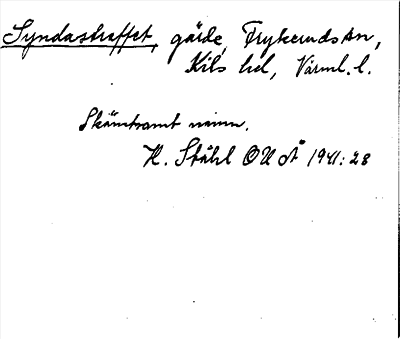 Syndastraffet, gärde, Frykerudssn,
Kils hd, Värml. l.
Skämtsamt namn.
H. Ståhl OUÅ 1941:28